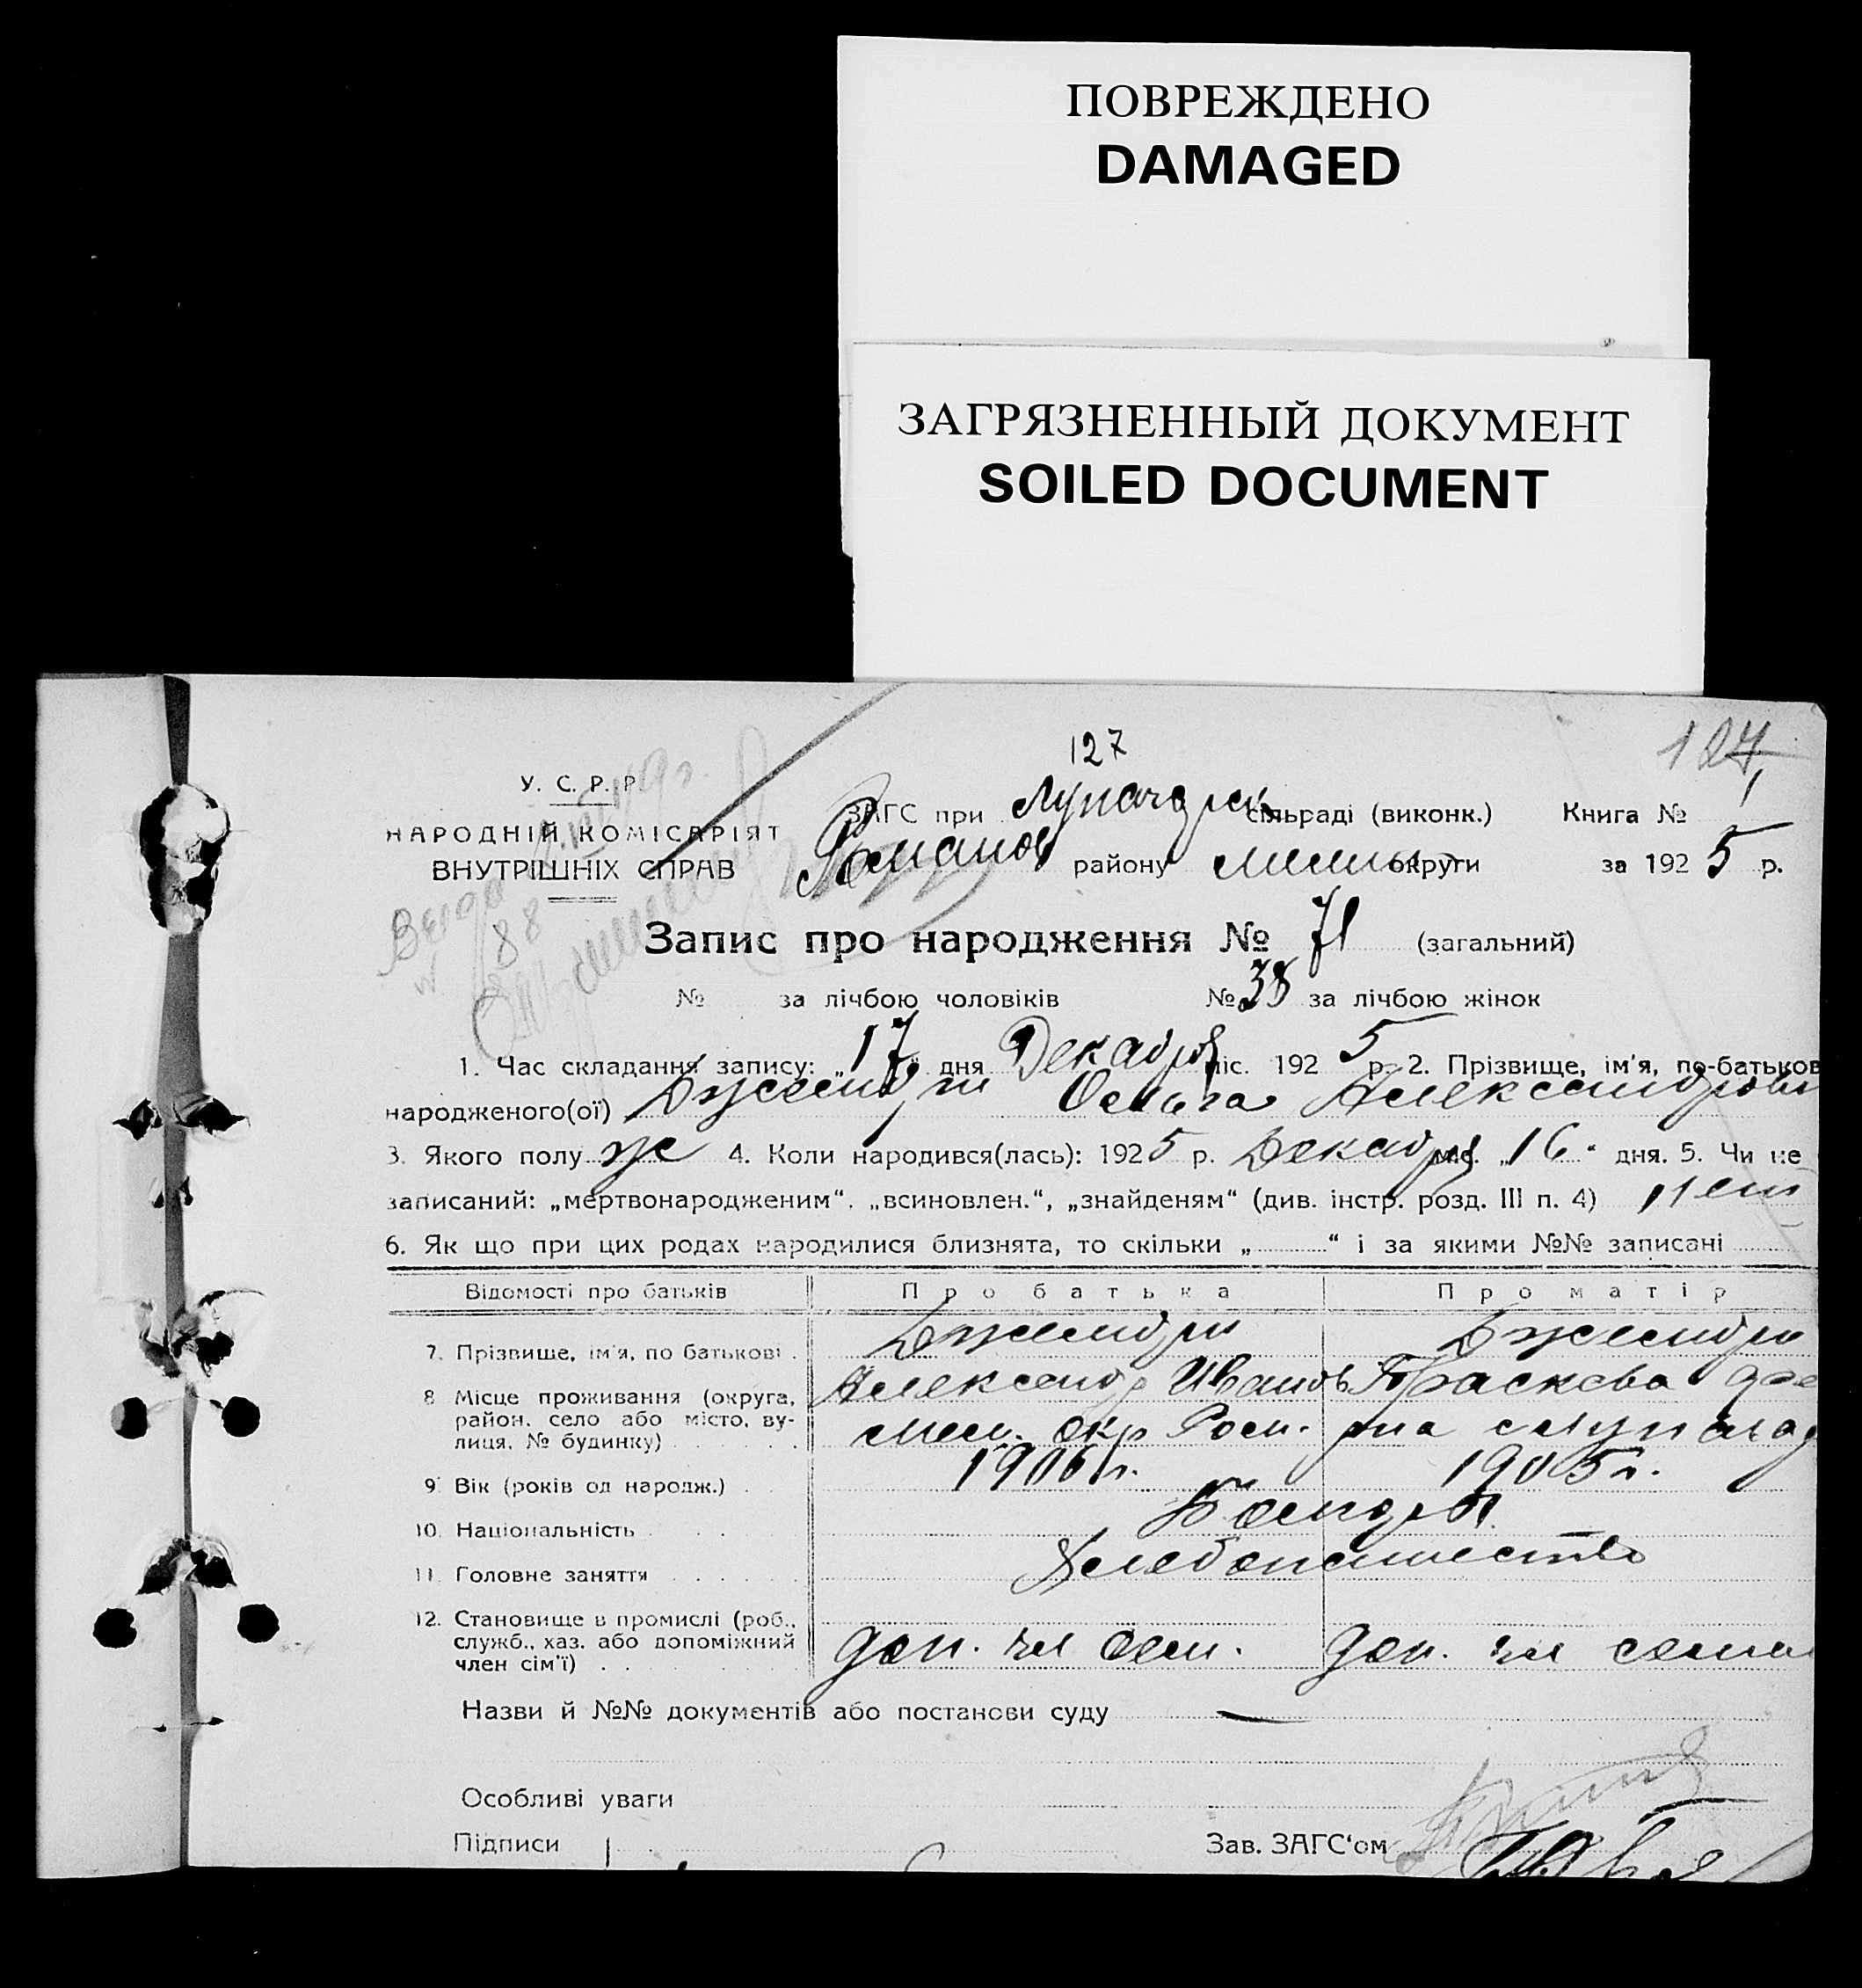 ПОВРЕЖДЕНО
DAMAGED
ЗАГРЯЗНЕННЫЙ ДОКУМЕНТ
SOILED DOCUMENT
127
127
У. С. Р. Р.
НАРОДНІЙ КОМІСАРІЯТ
ВНУТРІШНІХ СПРАВ
ЗАГС при сільраді (виконк.) Книга № 1
Романов району округи за 1925 р.
88
Запис про народження № 71 (загальний)
№ за лічбою чоловіків № 38 за лічбою жінок
1. Час складання запису: „17" дня Декабря міс. 1925 р. 2. Прізвище, ім'я, по-батьков
народженого(ої) Александров
3. Якого полу ж 4. Коли народився(лась): 1925 р. Декабря міс. „16" дня. 5. Чи не
записаний: „мертвонародженим". „всиновлен.", „знайденям" (див. інстр. розд. III п. 4) нет
6. Як що при цих родах народилися близнята, то скільки „ " і за якими №№ записані
Відомості про батьків Про батька Про матір
7. Прізвище, ім'я, по батькові .
Александр Иванов Параскева
8 Місце проживання (округа,
район, село або місто, ву-
лиця, № будинку)
мел. окр Ром.
9. Вік (років од народж.) 1906 г. 1905 г.
10. Національність
11. Головне заняття Хлебопашество
12. Становище в промислі (роб.,
служб., хаз. або допоміжний
член сім'ї) доп. чл сем. доп. чл семи
Назви й №№ документів або постанови суду —
Особливі уваги
Підписи Зав. ЗАГС'ом